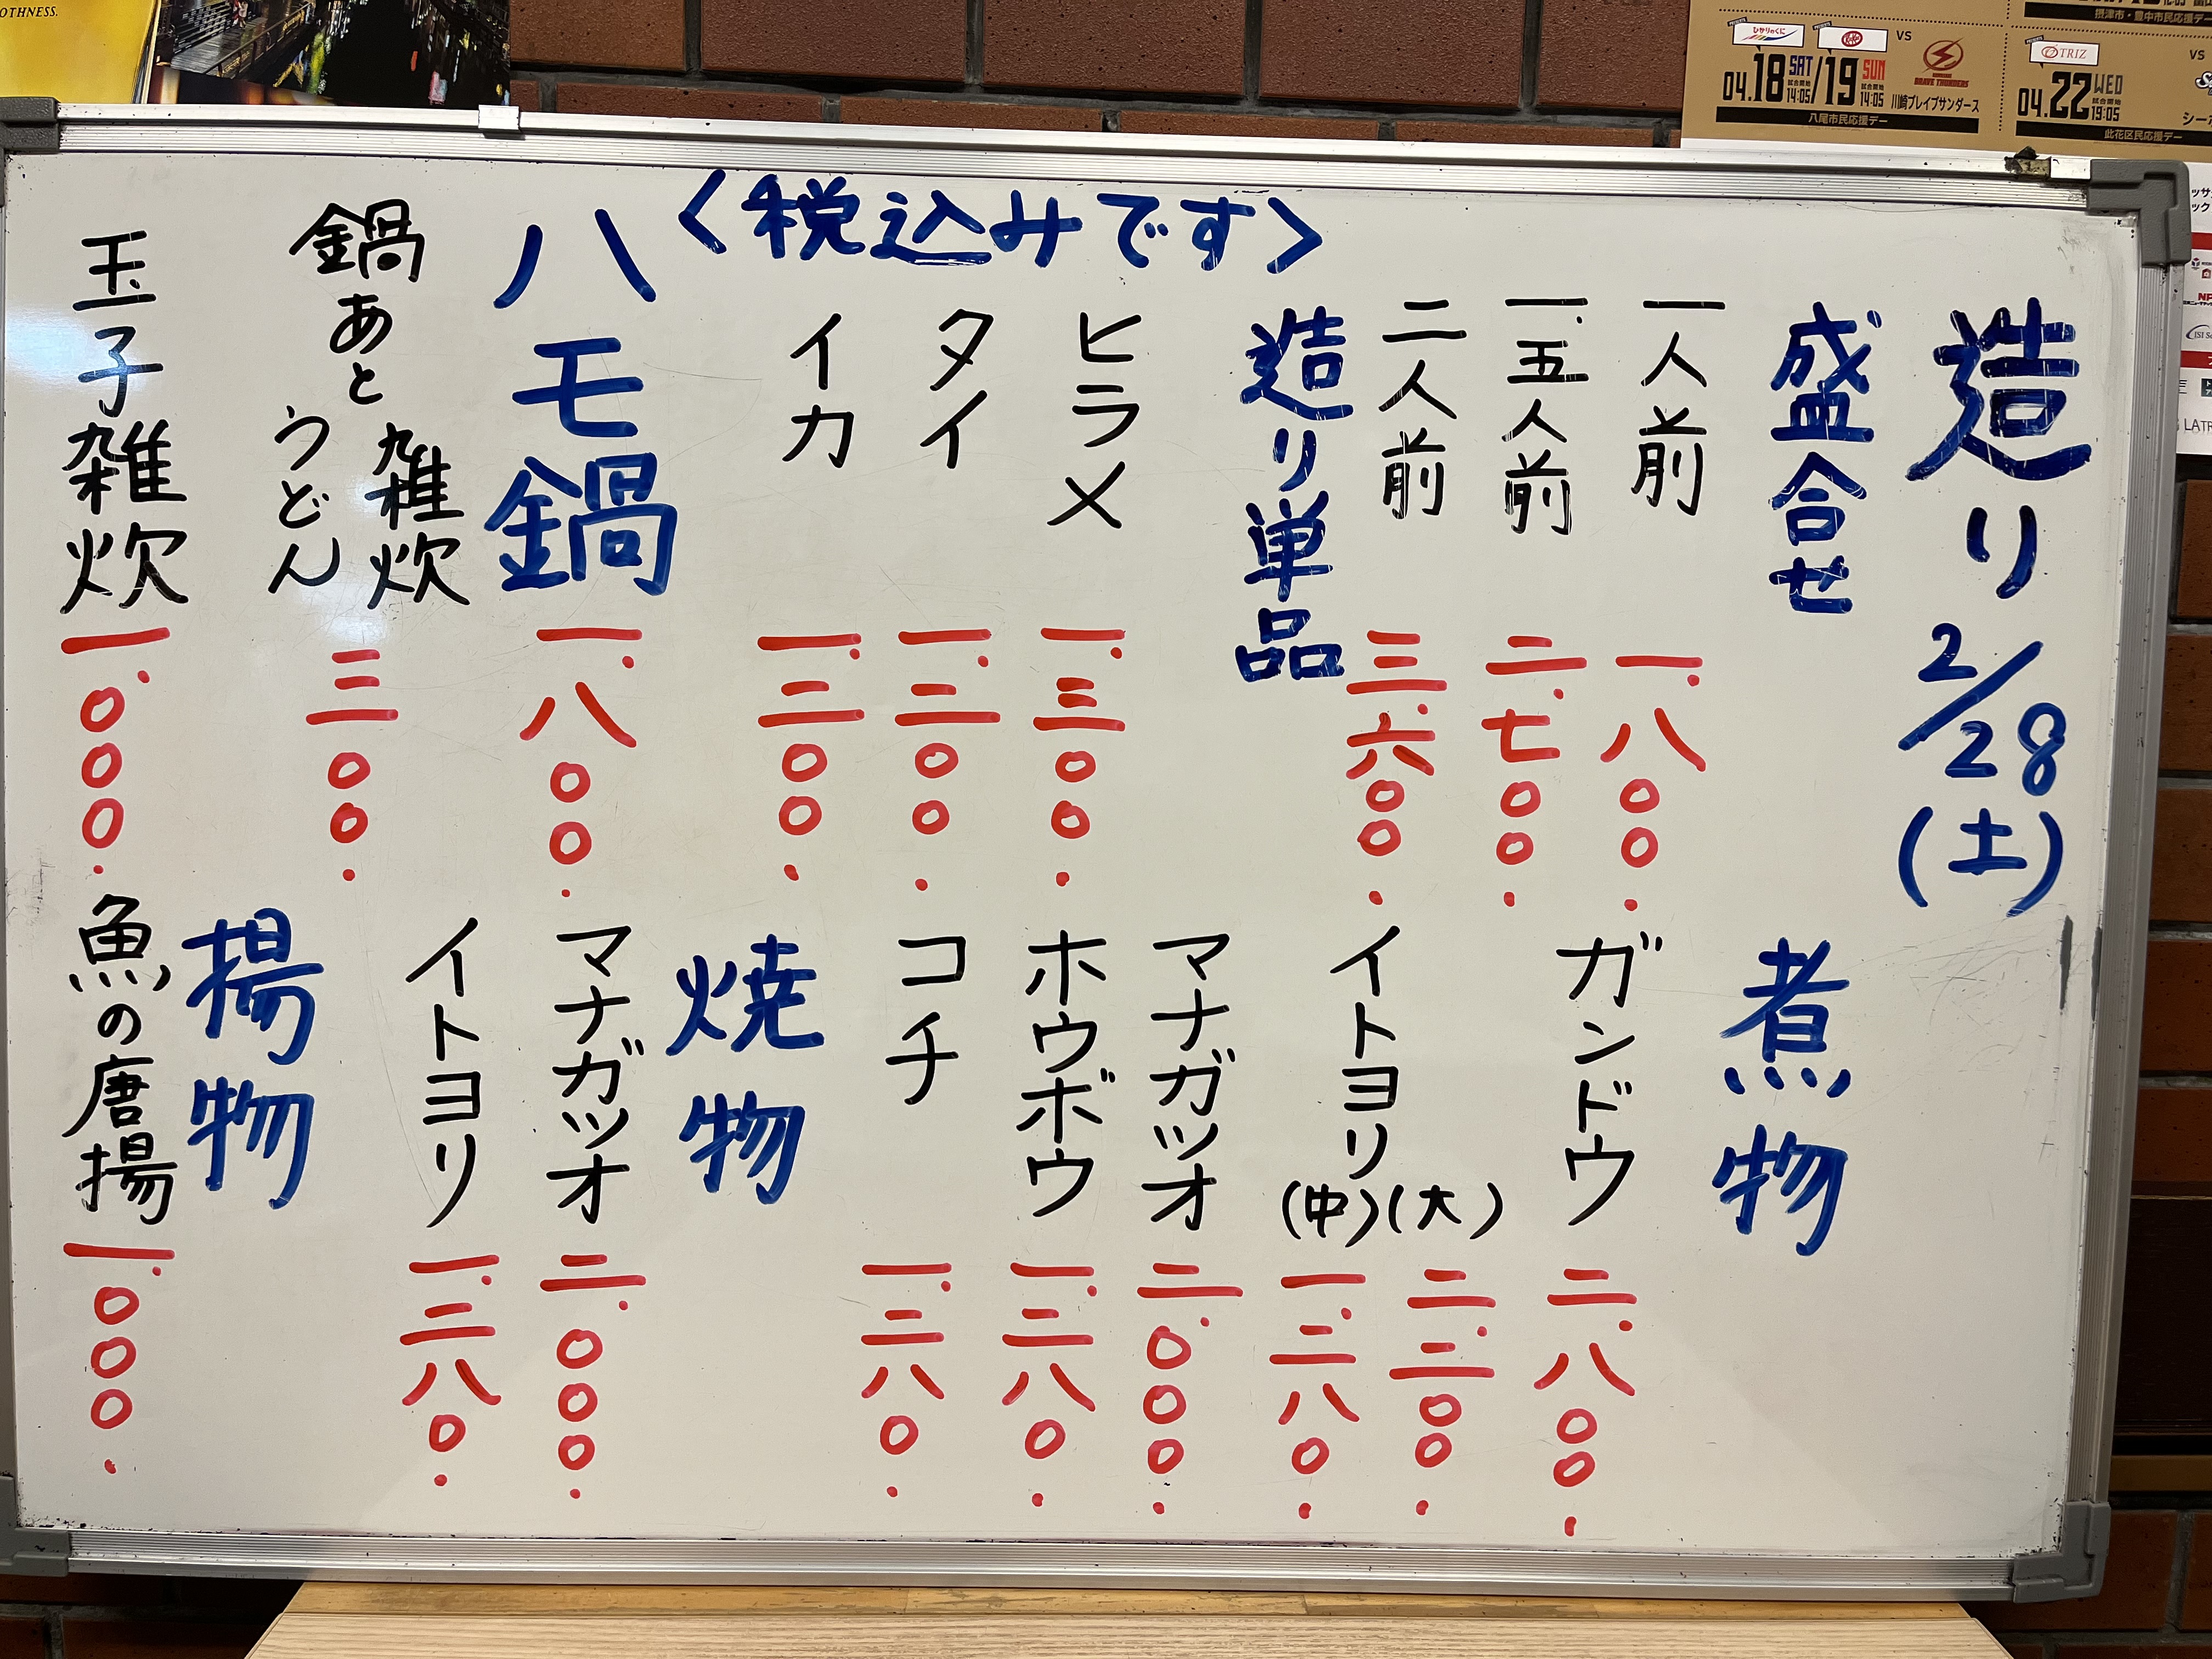 OTHNESS.
摂津市・豊中市民応援デー
ひかりのくに
VS
04.18 SAT 試合開始 14:05 / 19 SUN 試合開始 14:05
BRAVE THUNDERS
川崎ブレイブサンダース
八尾市民応援デー
TRIZ
VS
04.22 WED 試合開始 19:05
シーホ
此花区民応援デー
<税込みです>
造り 2/28(土)
盛合せ
一人前 一.八〇〇.
一.五人前 二.七〇〇.
二人前 三.六〇〇.
造り単品
ヒラメ 一.三〇〇.
タイ 一.二〇〇.
イカ 一.二〇〇.
ハモ鍋 一.八〇〇.
鍋あと 雑炊 うどん 三〇〇.
玉子雑炊 一.〇〇〇.
煮物
ガンドウ 二.八〇〇.
イトヨリ (大) 二.二〇〇.
(中) 一.二八〇.
マナガツオ 二.〇〇〇.
ホウボウ 一.二八〇.
コチ 一.二八〇.
焼物
マナガツオ 二.〇〇〇.
イトヨリ 一.二八〇.
揚物
魚の唐揚 一.〇〇〇.